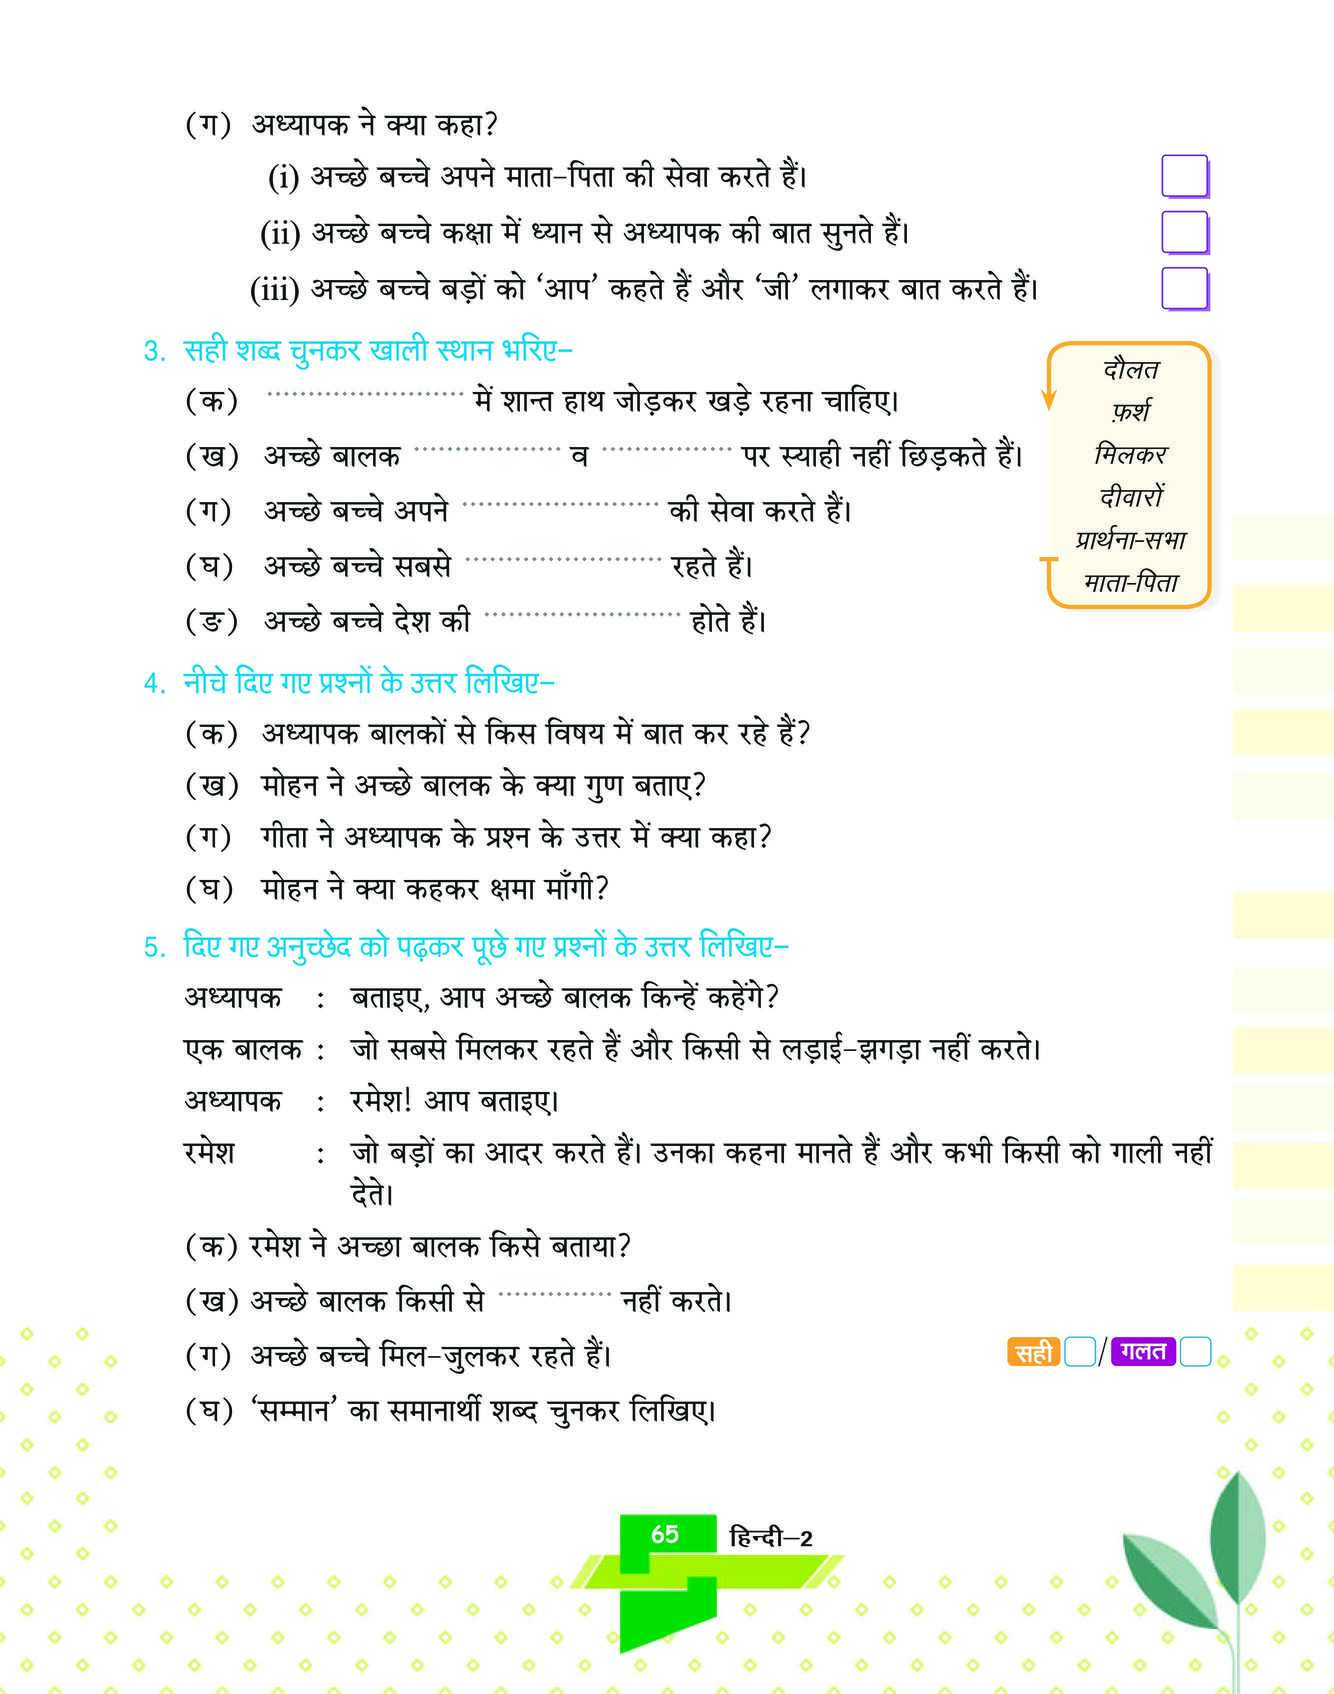 (ग) अध्यापक ने क्या कहा?
(i) अच्छे बच्चे अपने माता-पिता की सेवा करते हैं।
(ii) अच्छे बच्चे कक्षा में ध्यान से अध्यापक की बात सुनते हैं।
(iii) अच्छे बच्चे बड़ों को ‘आप’ कहते हैं और ‘जी’ लगाकर बात करते हैं।
3. सही शब्द चुनकर खाली स्थान भरिए–
(क) ........................ में शान्त हाथ जोड़कर खड़े रहना चाहिए।
(ख) अच्छे बालक .................. व ................ पर स्याही नहीं छिड़कते हैं।
(ग) अच्छे बच्चे अपने ........................ की सेवा करते हैं।
(घ) अच्छे बच्चे सबसे ........................ रहते हैं।
(ङ) अच्छे बच्चे देश की ........................ होते हैं।
दौलत
फ़र्श
मिलकर
दीवारों
प्रार्थना-सभा
माता-पिता
4. नीचे दिए गए प्रश्नों के उत्तर लिखिए–
(क) अध्यापक बालकों से किस विषय में बात कर रहे हैं?
(ख) मोहन ने अच्छे बालक के क्या गुण बताए?
(ग) गीता ने अध्यापक के प्रश्न के उत्तर में क्या कहा?
(घ) मोहन ने क्या कहकर क्षमा माँगी?
5. दिए गए अनुच्छेद को पढ़कर पूछे गए प्रश्नों के उत्तर लिखिए–
अध्यापक : बताइए, आप अच्छे बालक किन्हें कहेंगे?
एक बालक : जो सबसे मिलकर रहते हैं और किसी से लड़ाई-झगड़ा नहीं करते।
अध्यापक : रमेश! आप बताइए।
रमेश : जो बड़ों का आदर करते हैं। उनका कहना मानते हैं और कभी किसी को गाली नहीं
देते।
(क) रमेश ने अच्छा बालक किसे बताया?
(ख) अच्छे बालक किसी से .............. नहीं करते।
(ग) अच्छे बच्चे मिल-जुलकर रहते हैं। सही / गलत
(घ) ‘सम्मान’ का समानार्थी शब्द चुनकर लिखिए।
65 हिन्दी–2